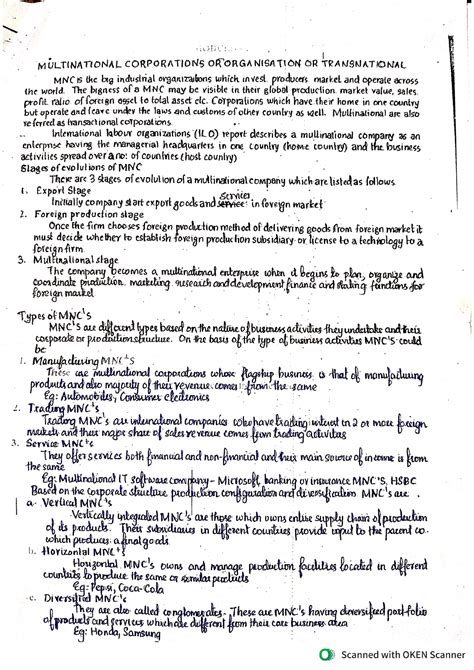 MULTINATIONAL CORPORATIONS OR ORGANISATION OR TRANSNATIONAL
MNC is the big industrial organizations which invest producers market and operate across
the world. The bigness of a MNC may be visible in their global production. market value, sales.
profit. ratio of foreign asset to total asset etc. Corporations which have their home in one country
but operate and leave under the laws and customs of other country as well. Multinational are also
referred as transactional corporations.
International labour organizations (ILO) report describes a multinational company as an
enterprise having the managerial headquarters in one country (home country) and the business
activities spread over a no: of countries (host country)
Stages of evolutions of MNC
There are 3 stages of evolution of a multinational company which are listed as follows
1. Export Stage
Initially company start export goods and services in foreign market
2. Foreign production stage
Once the firm chooses foreign production method of delivering goods from foreign market it
must decide whether to establish foreign production subsidiary or license to a technology to a
foreign firm
3. Multinational stage
The company becomes a multinational enterprise when it begins to plan, organize and
coordinate production. marketing. research and development, finance and functions for
foreign market
Types of MNC's
MNC's are different types based on the nature of business activities they undertake and their
corporate or production structure. On the basis of the type of business activities MNC'S could
be
1. Manufacturing MNC'S
These are multinational corporations whose flagship business is that of manufacturing
products and also majority of their revenue comes from the same
Eg: Automobiles, Consumer electronics
2. Trading MNC's
Trading MNC's are international companies who have trading interest in 2 or more foreign
markets and their major share of sales revenue comes from trading activities
3. Service MNC's
They offer services both financial and non-financial and their main source of income is from
the same
Eg: Multinational IT software company - Microsoft, banking or insurance MNC'S, HSBC
Based on the corporate structure production configuration and diversification MNC's are.
a. Vertical MNC's
Vertically integrated MNC's are those which owns entire supply chain of production
of its products. Their subsidiaries in different countries provide input to the parent co.
which produces a final goods
b. Horizontal MNC's
Horizontal MNC's owns and manage production facilities located in different
countries to produce the same or similar products
Eg: Pepsi, Coca-Cola
c. Diversified MNC's
They are also called conglomerates. These are MNC's having diversified portfolio
of products and services which are different from their core business area
Eg: Honda, Samsung
Scanned with OKEN Scanner